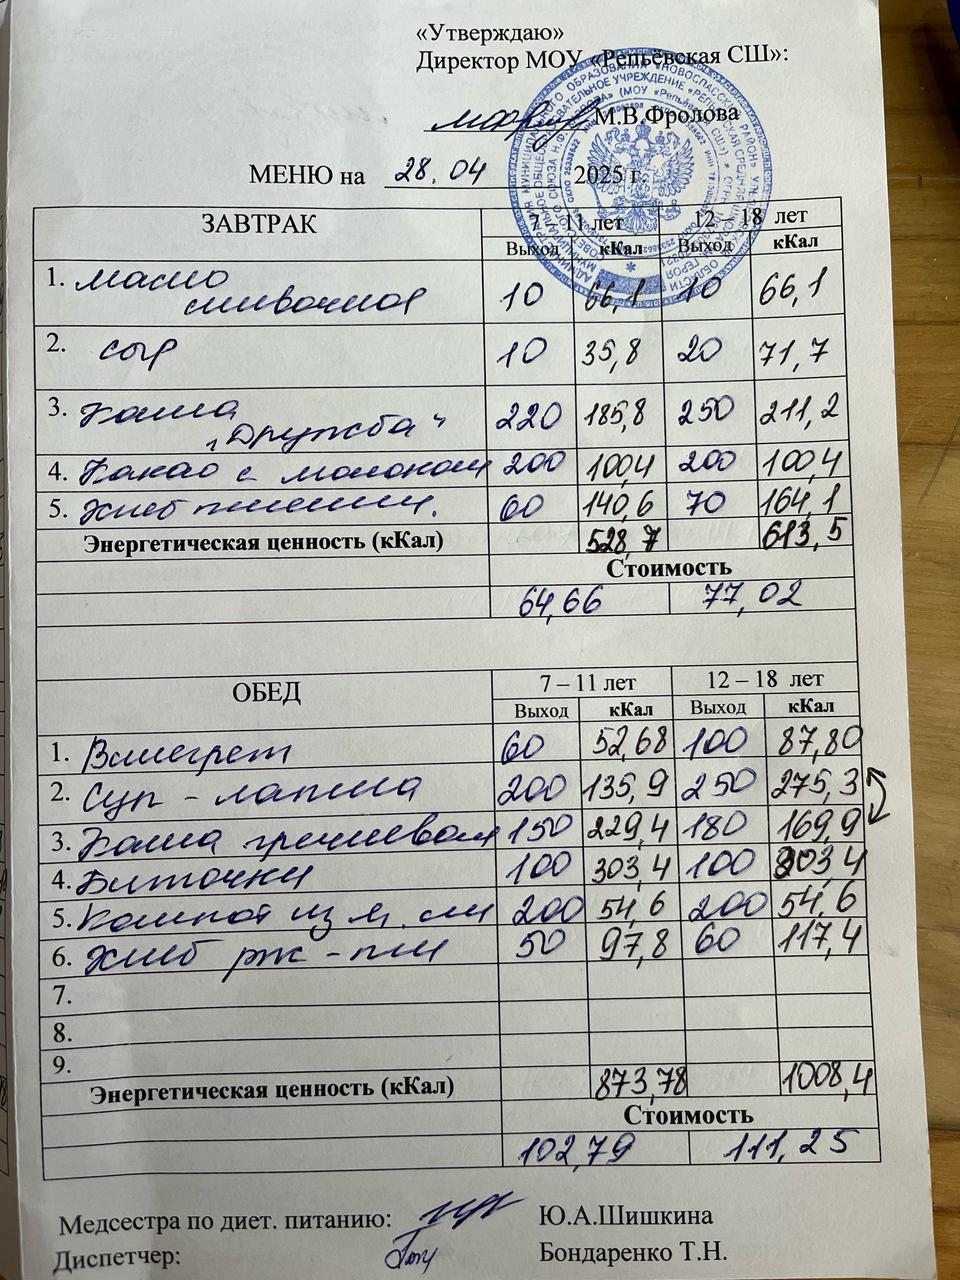 «Утверждаю»
Директор МОУ «Репьёвская СШ»:
М.В.Фролова
МЕНЮ на 28.04 2025 г.
ЗАВТРАК 7 – 11 лет 12 – 18 лет
Выход кКал Выход кКал
1. Масло сливочное 10 66,1 10 66,1
2. сыр 10 35,8 20 71,7
3. Каша „Дружба“ 220 185,8 250 211,2
4. Какао с молоком 200 100,4 200 100,4
5. Хлеб пшенич. 60 140,6 70 164,1
Энергетическая ценность (кКал) 528,7 613,5
Стоимость
64,66 77,02
ОБЕД 7 – 11 лет 12 – 18 лет
Выход кКал Выход кКал
1. Винегрет 60 52,68 100 87,80
2. Суп - лапша 200 135,9 250 275,3
3. Каша гречневая 150 229,4 180 169,9
4. Биточки 100 303,4 100 303,4
5. Компот из 200 54,6 200 54,6
6. Хлеб рж - пш 50 97,8 60 117,4
7.
8.
9.
Энергетическая ценность (кКал) 873,78 1008,4
Стоимость
102,79 111,25
Медсестра по диет. питанию: Ю.А.Шишкина
Диспетчер: Бондаренко Т.Н.